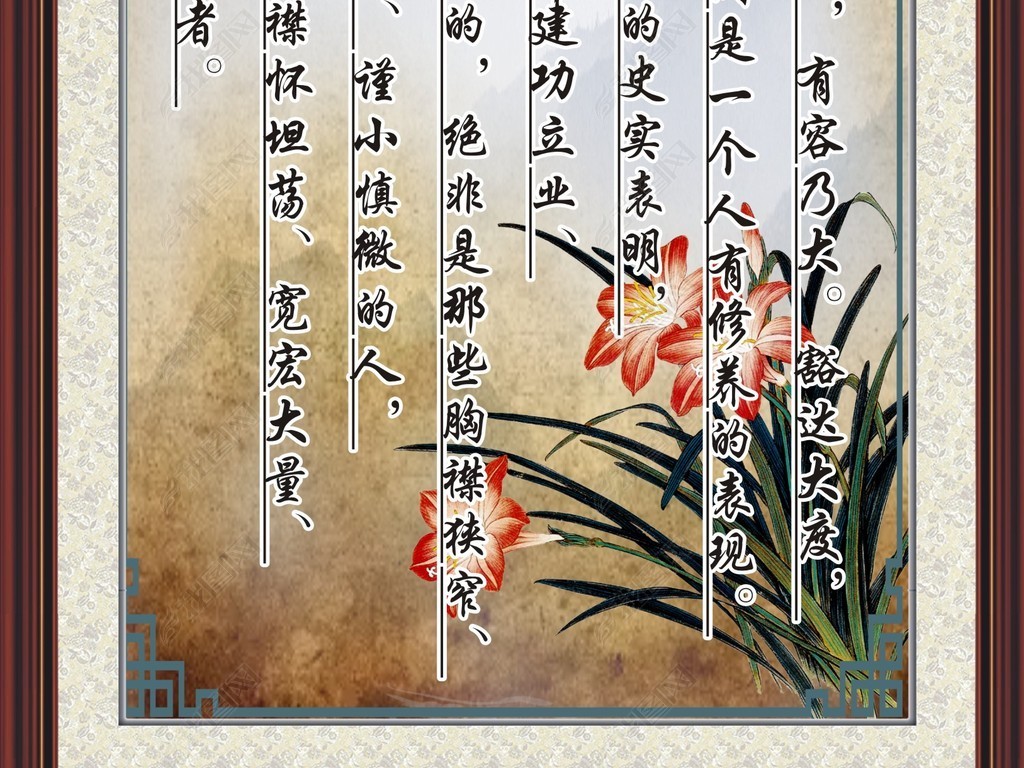 ，有容乃大。豁达大度，
是一个人有修养的表现。
的史实表明，
建功立业、
的，绝非是那些胸襟狭窄、
、谨小慎微的人，
襟怀坦荡、宽宏大量、
者。